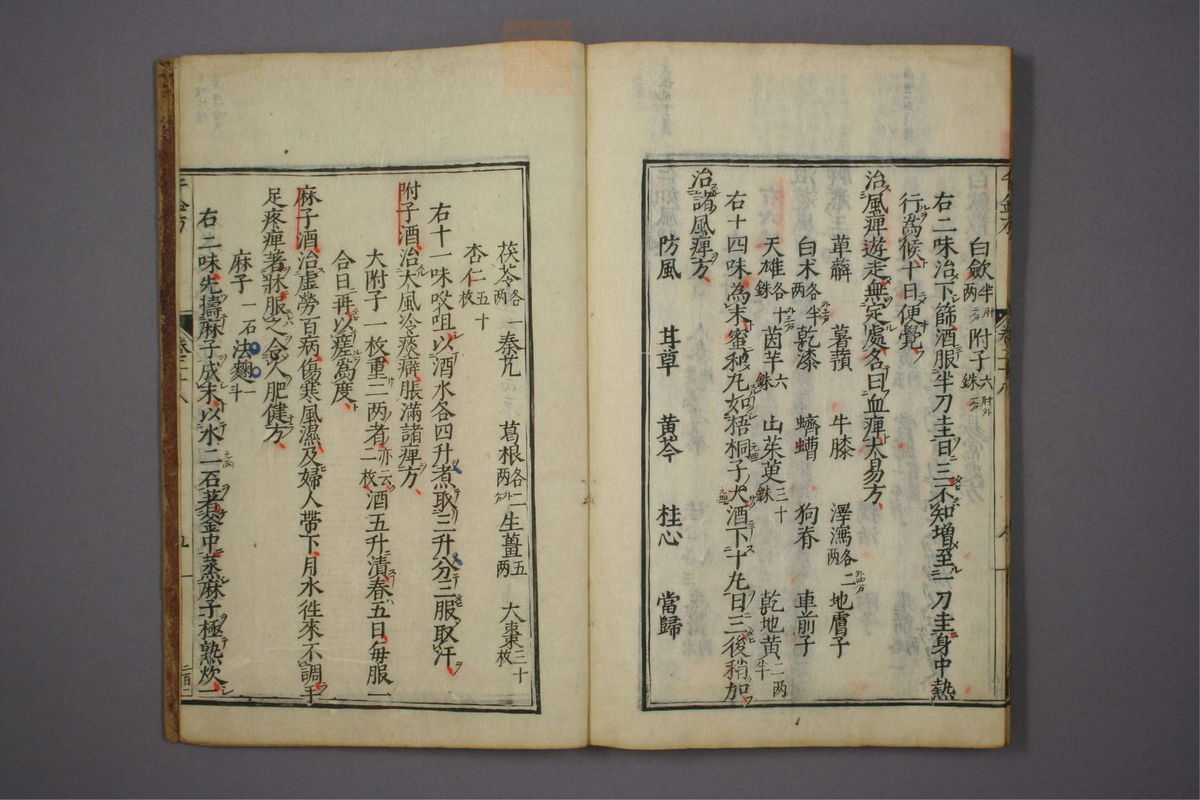 白斂半兩 附子六銖
右二味治下篩酒服半刀圭日三不知增至一刀圭身中熱
行爲候十日便覺
治風痺遊走無定處名曰血痺大易方
萆薢 薯蕷 牛膝 澤瀉各二兩 地膚子
白朮各半兩 乾漆 蠐螬 狗脊 車前子
天雄各十銖 茵芋六銖 山茱萸三十銖 乾地黃二兩半
右十四味爲末蜜和丸如梧桐子大酒下十丸日三後稍加
治諸風痺方
防風 甘草 黃芩 桂心 當歸
茯苓各一兩 秦艽 葛根各二兩 生薑五兩 大棗三十枚
杏仁五十枚
右十一味㕮咀以酒水各四升煮取三升分三服取汗
附子酒治大風冷痰癖脹滿諸痺方
大附子一枚重二兩者亦云二枚 酒五升漬春五日每服一
合日再以痺爲度
麻子酒治虛勞百病傷寒風濕及婦人帶下月水往來不調手
足疼痺著牀服之令人肥健方
麻子一石 法麴一斗
右二味先擣麻子成末以水二石著釜中蒸麻子極熟炊一
千金方
卷二十八
九
二百一